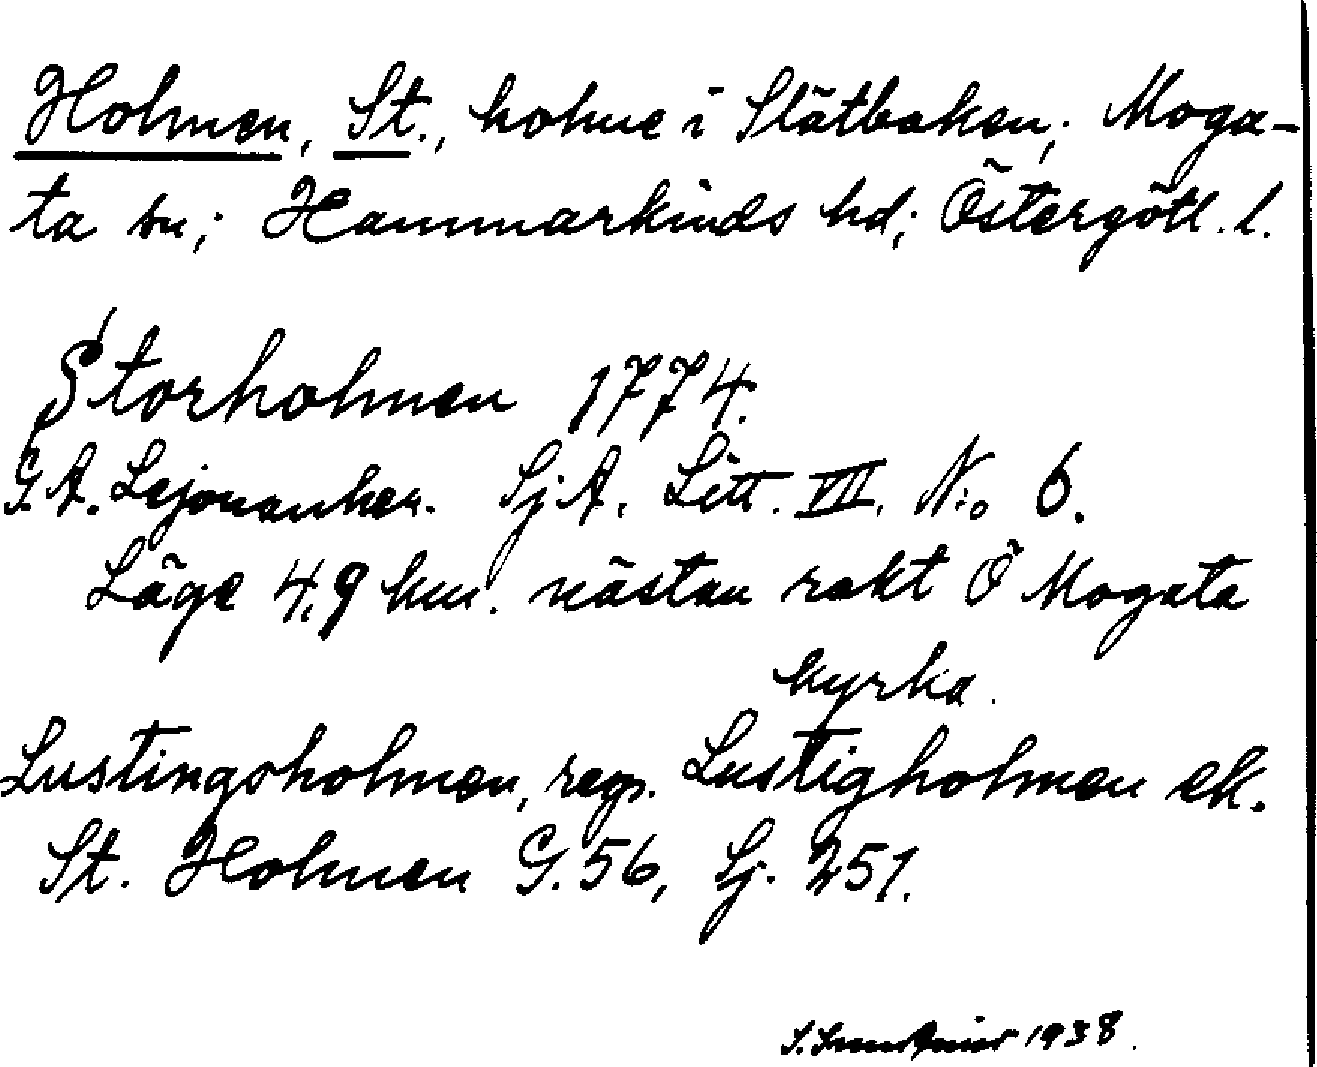 Holmen, St., holme i Slätbaken; Moga-
ta sn; Hammarkinds hd; Östergötl. l.
Storholmen 1774.
G.A. Lejonanker. SjA. Litt. VII. N:o 6.
Läge 4,9 km. nästan rakt Ö Mogata
kyrka.
Lustingsholmen, reg. Lustigholmen ek.
St. Holmen G. 56, Sj. 251.
1938.